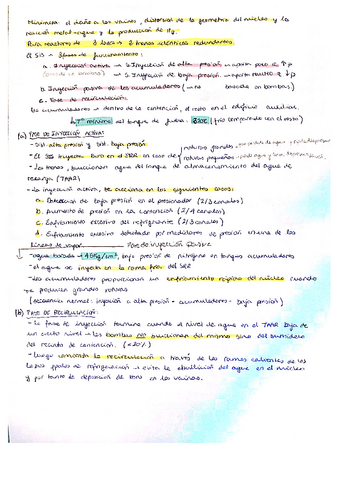 Minimiza el daño a las vainas, distorsión de la geometría del núcleo y la
reacción metal-agua y la producción de H2.
Para reactores de 3 lazos - 2 trenes idénticos redundantes.
El SIS - 3 fases de funcionamiento:
a. Inyección activa → Inyección de alta presión → aporta poco e ↑p
→ Inyección de baja presión → aporta mucho e ↓p
b. Inyección pasiva de los acumuladores (no basada en bombas)
c. Fase de recirculación.
Los acumuladores → dentro de la contención, el resto en el edificio auxiliar.
(a) FASE DE INYECCIÓN ACTIVA:
- Sist. alta presión y sist. baja presión.
- El SIS inyecta boro en el SRR en caso de roturas grandes
roturas pequeñas
- Los trenes, funcionan agua del tanque de almacenamiento del agua de
recarga (TAAR)
- La inyección activa, se acciona en los siguientes casos:
a. Detección de baja presión en el presionador (2/3 canales)
b. Aumento de presión en la contención (2/4 canales)
c. Enfriamiento excesivo del refrigerante (2/3 canales)
d. Enfriamiento excesivo detectado por medidores de presión en una de las
líneas de vapor. Fase de inyección pasiva
- agua borada → 46Kg/cm², bajo presión de nitrógeno en tanques acumuladores
- el agua se inyecta en la rama fría del SRR
- Los acumuladores proporcionan un enfriamiento rápido del núcleo cuando
se producen grandes roturas
(secuencia normal: inyección a alta presión - acumuladores - baja presión)
(b) FASE DE RECIRCULACIÓN:
- la fase de inyección termina cuando el nivel de agua en el TAAR baja de
un cierto nivel → las bombas no succionan del mismo sino del sumidero
del recinto de contención. (<20%)
- luego comienza la recirculación a través de las ramas calientes de los
lazos de refrigeración → evita la ebullición del agua en el núcleo
y por tanto la deposición de boro en las vainas.